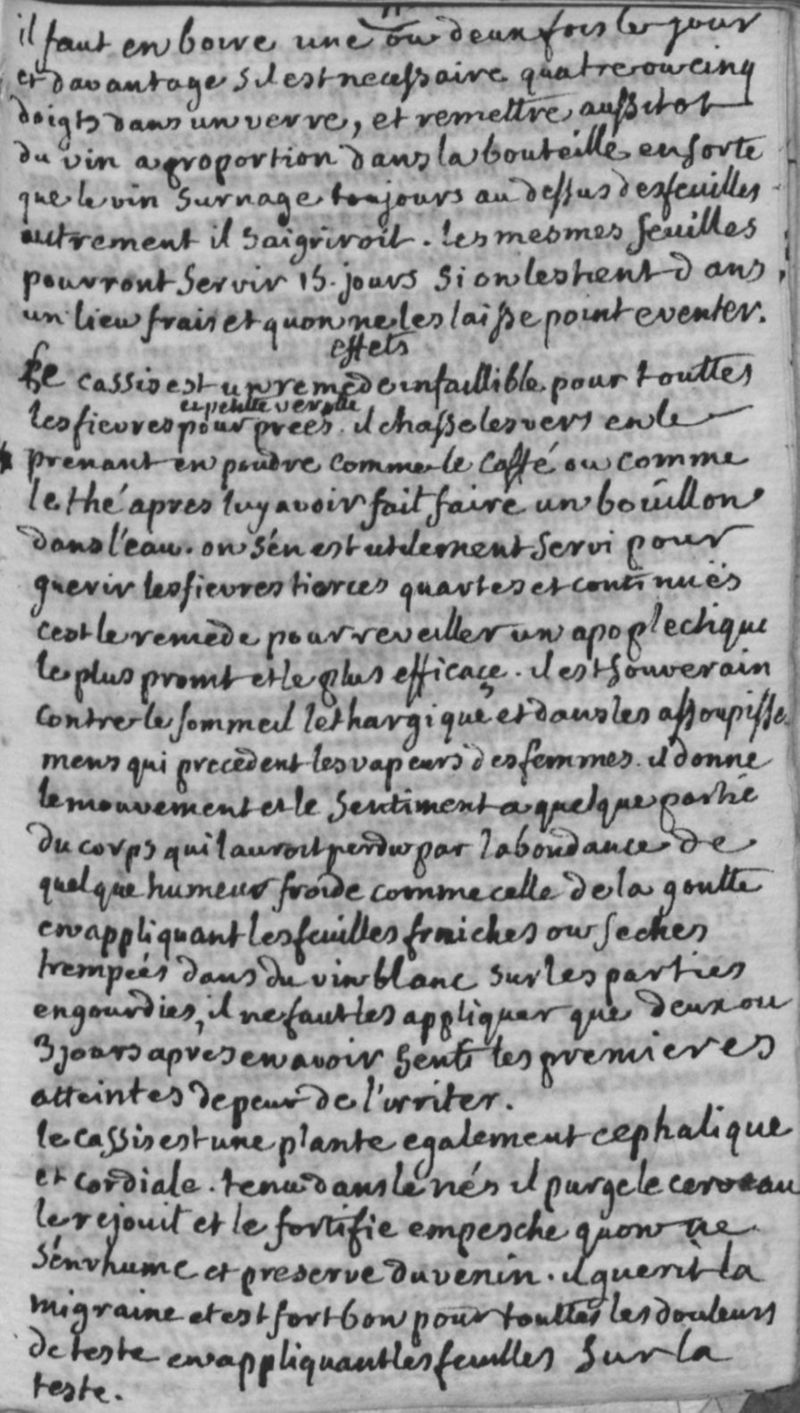 il faut en boire une ou deux fois le jour
et davantage sil est necessaire quatre ou cinq
doigts dans un verre, et remettre aussitot
du vin a proportion dans la bouteille en sorte
que le vin surnage toujours au dessus des feuilles
autrement il saigriroit. les mesmes feuilles
pourront servir 15. jours si on les tient dans
un lieu frais et quon ne les laisse point eventer.
effets
Le cassis est un remede infaillible pour touttes
et petite verolle
les fievres pourprées. il chasse les vers en le
prenant en poudre comme le caffé ou comme
le thé apres luy avoir fait faire un boüillon
dans l'eau. on s'en est utilement servi pour
guerir les fievres tierces quartes et continuës
cest le remede pour reveiller un apoplectique
le plus promt et le plus efficace. il est souverain
contre le sommeil lethargique et dans les assoupisse
mens qui precedent les vapeurs des femmes. il donne
le mouvement et le sentiment a quelque partie
du corps qui lauroit perdu par labondance de
quelque humeur froide comme celle de la goutte
en appliquant les feuilles fraiches ou seches
trempées dans du vin blanc sur les parties
engourdies, il ne faut les appliquer que deux ou
3 jours apres en avoir senti les premieres
atteintes de peur de l'irriter.
le cassis est une plante egalement cephalique
et cordiale. tenu dans le nés il purge le cerveau
le rejouit et le fortifie empesche quon ne
s'enrhume et preserve du venin. il guerit la
migraine et est fort bon pour touttes les douleurs
de teste en appliquant les feuilles sur la
teste.